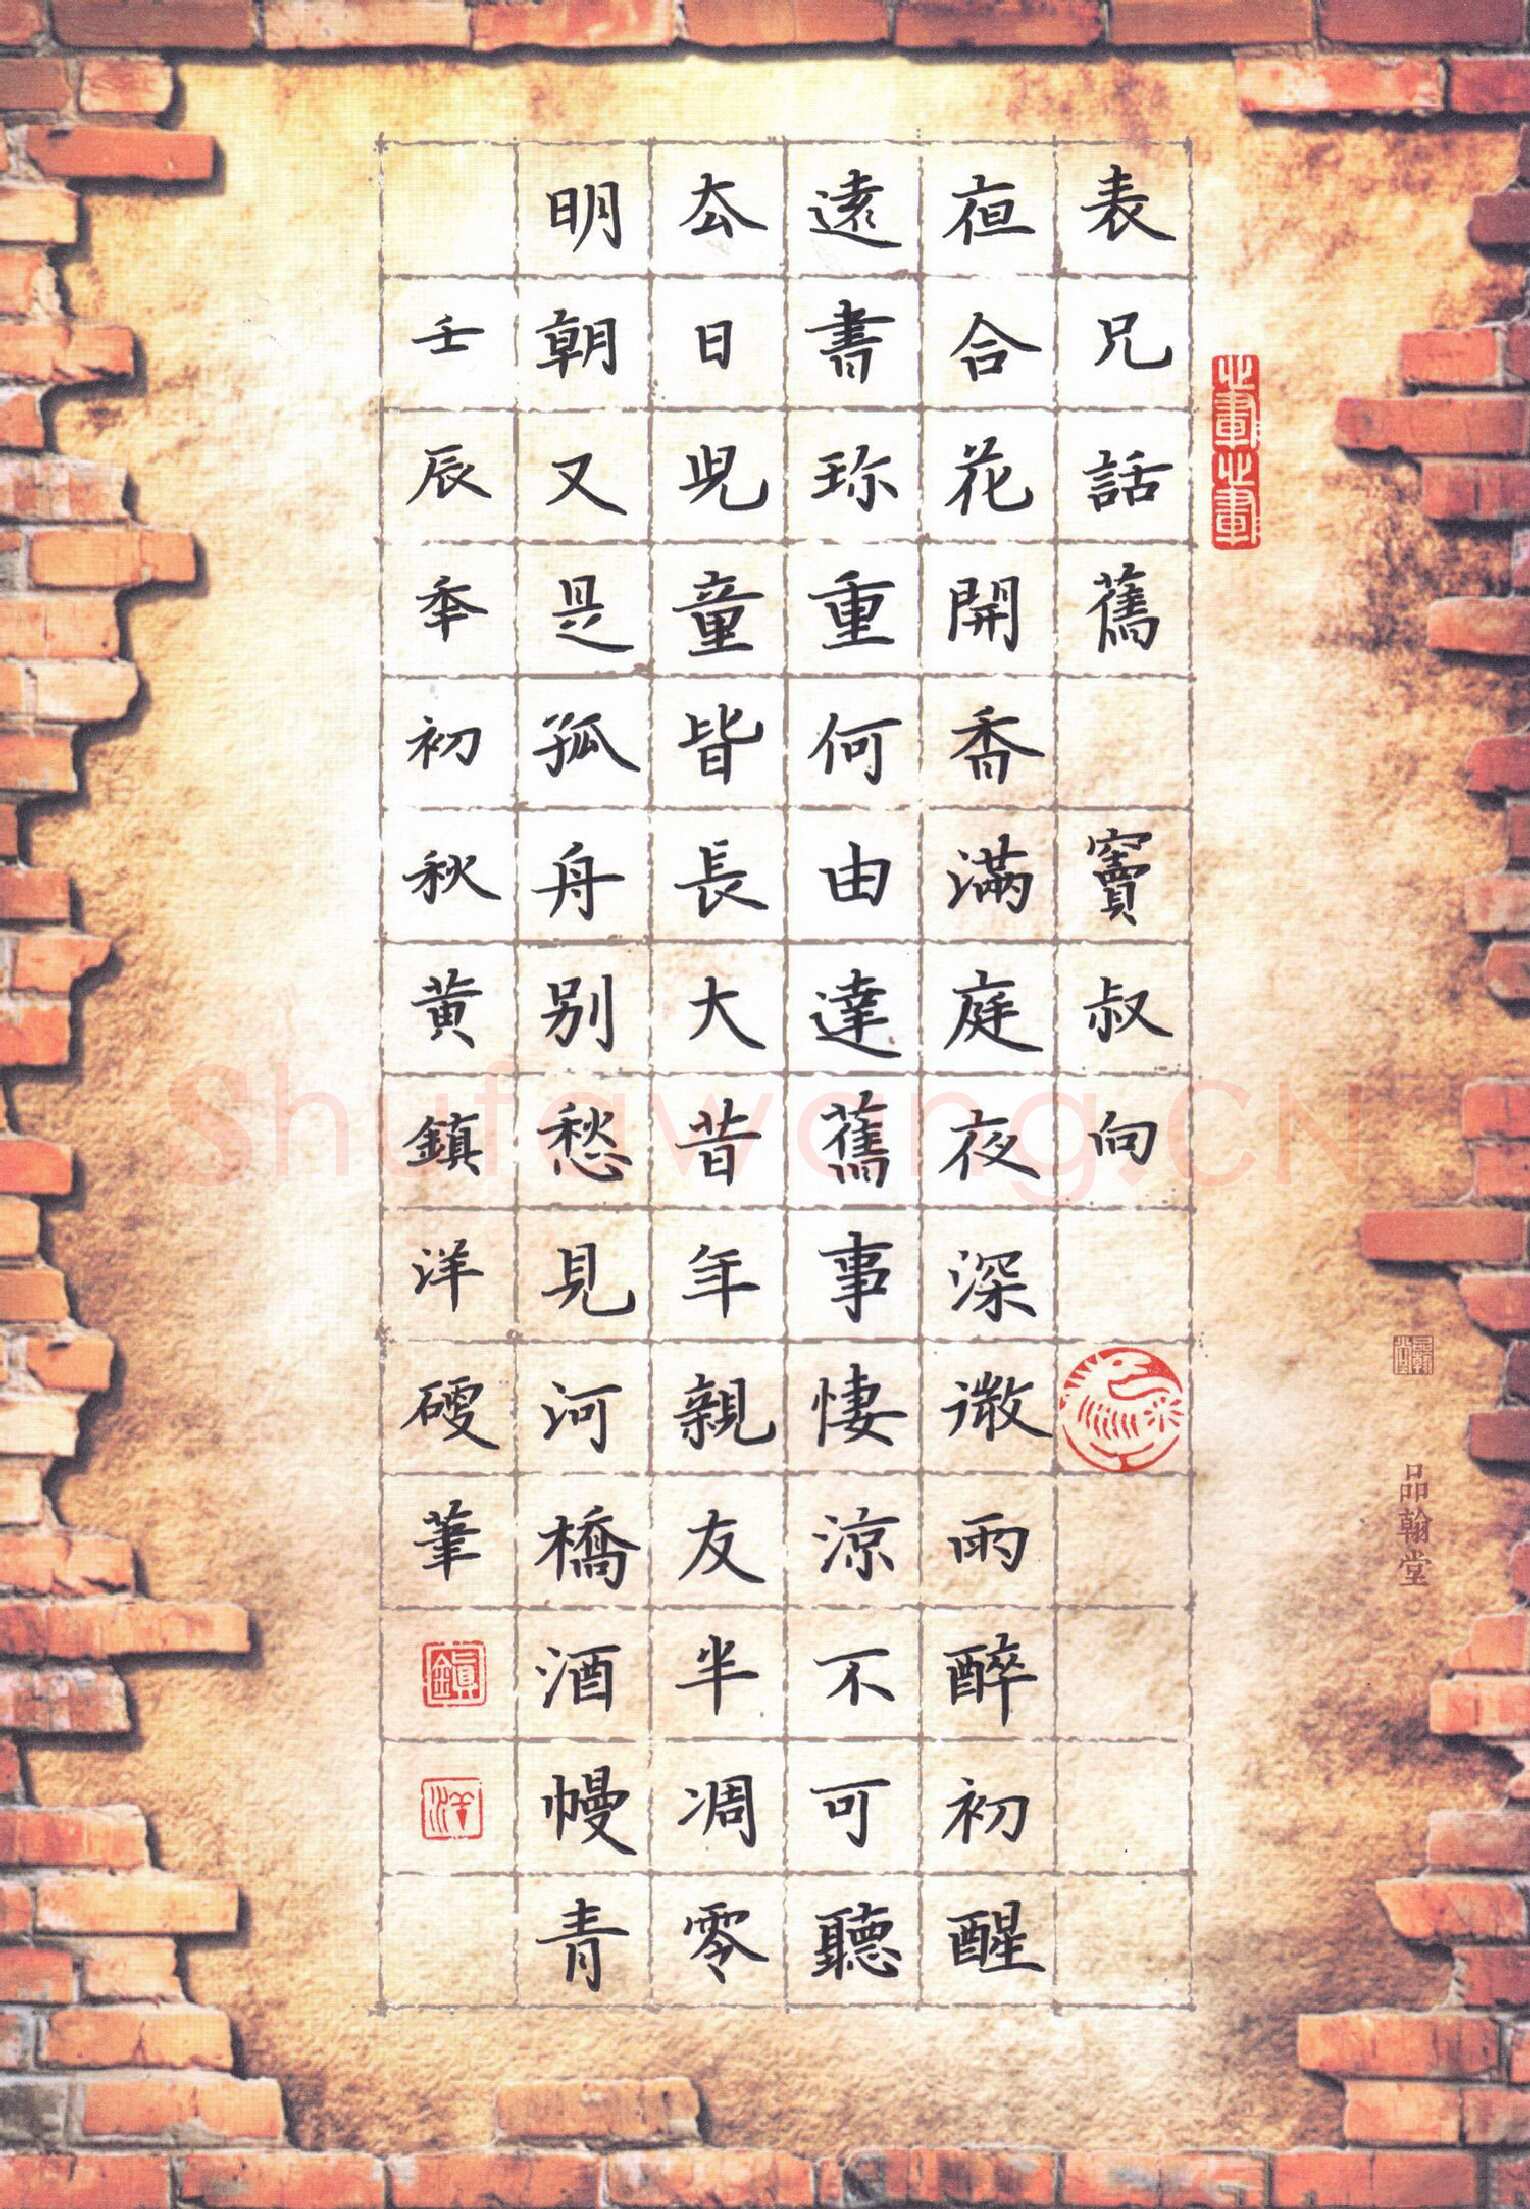 表兄話舊 竇叔向
夜合花開香滿庭夜深微雨醉初醒
遠書珍重何由達舊事悽涼不可聽
去日兒童皆長大昔年親友半凋零
明朝又是孤舟別愁見河橋酒幔青
壬辰年初秋黃鎮洋硬筆
鎮
洋
品翰堂
Shufawang.CN